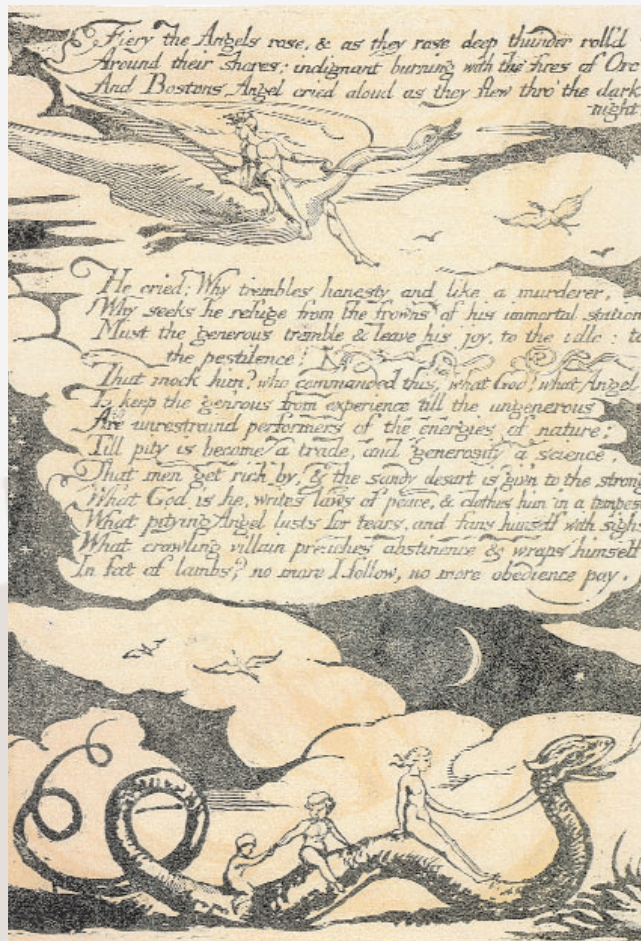 Fiery the Angels rose, & as they rose deep thunder roll'd
Around their shores: indignant burning with the fires of Orc
And Bostons Angel cried aloud as they flew thro' the dark
night.
He cried: Why trembles honesty and like a murderer,
Why seeks he refuge from the frowns of his immortal station
Must the generous tremble & leave his joy, to the idle: to
the pestilence!
That mock him? who commanded this? what God? what Angel
To keep the gen'rous from experience till the ungenerous
Are unrestraind performers of the energies of nature;
Till pity is become a trade, and generosity a science,
That men get rich by, & the sandy desart is giv'n to the strong
What God is he, writes laws of peace, & clothes him in a tempes
What pitying Angel lusts for tears, and fans himself with sighs
What crawling villain preaches abstinence & wraps himself
In fat of lambs? no more I follow, no more obedience pay.